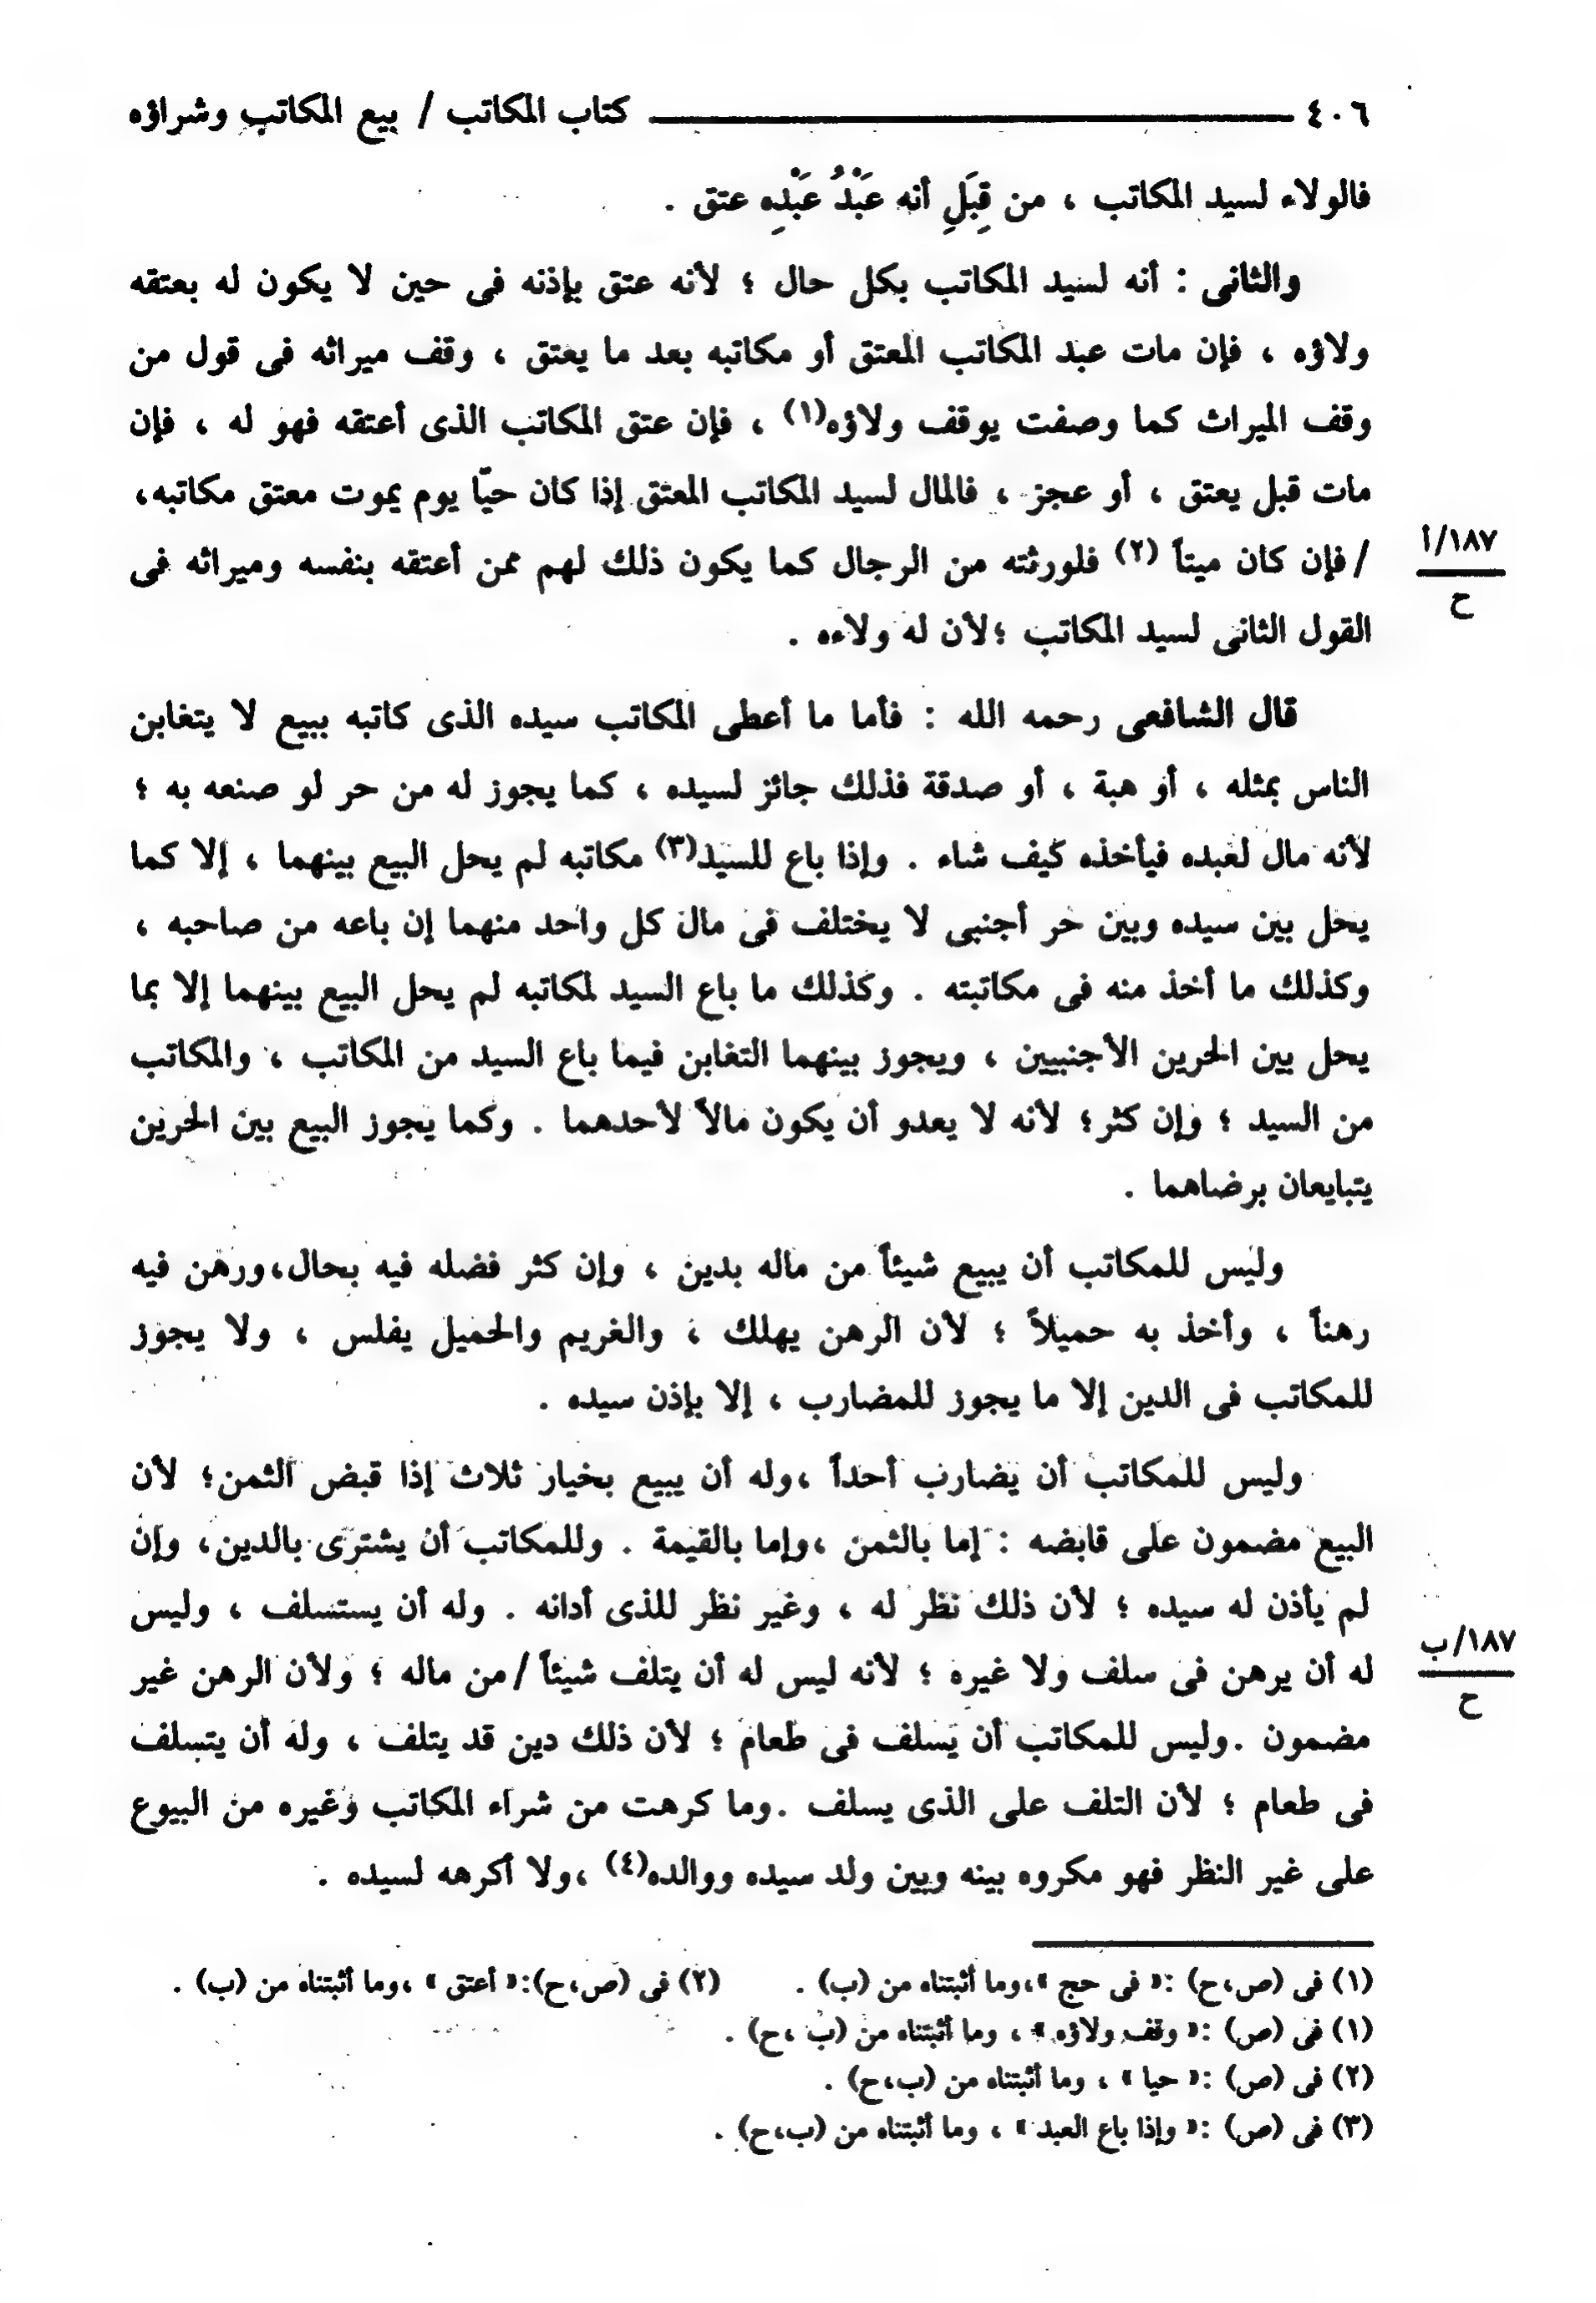 ٤٠٦ ــــــــــــــــــــ كتاب المكاتب / بيع المكاتب وشراؤه
فالولاء لسيد المكاتب ، من قِبَلِ أنه عَبْدُ عَبْدِه عتق .
والثانى : أنه لسيد المكاتب بكل حال ؛ لأنه عتق بإذنه فى حين لا يكون له بعتقه
ولاؤه ، فإن مات عبد المكاتب المعتق أو مكاتبه بعد ما يعتق ، وقف ميراثه فى قول من
وقف الميراث كما وصفت يوقف ولاؤه(١) ، فإن عتق المكاتب الذى أعتقه فهو له ، فإن
مات قبل يعتق ، أو عجز ، فالمال لسيد المكاتب المعتق إذا كان حيّا يوم يموت معتق مكاتبه،
/ فإن كان ميتاً (٢) فلورثته من الرجال كما يكون ذلك لهم ممن أعتقه بنفسه وميراثه فى
١٨٧/أ
ح
القول الثانى لسيد المكاتب ؛لأن له ولاءه .
قال الشافعى رحمه الله : فأما ما أعطى المكاتب سيده الذى كاتبه ببيع لا يتغابن
الناس بمثله ، أو هبة ، أو صدقة فذلك جائز لسيده ، كما يجوز له من حر لو صنعه به ؛
لأنه مال لعبده فيأخذه كيف شاء . وإذا باع للسيد(٣) مكاتبه لم يحل البيع بينهما ، إلا كما
يحل بين سيده وبين حر أجنبى لا يختلف فى مال كل واحد منهما إن باعه من صاحبه ،
وكذلك ما أخذ منه فى مكاتبته . وكذلك ما باع السيد لمكاتبه لم يحل البيع بينهما إلا بما
يحل بين الحرين الأجنبيين ، ويجوز بينهما التغابن فيما باع السيد من المكاتب ، والمكاتب
من السيد ؛ وإن كثر؛ لأنه لا يعدو أن يكون مالاً لأحدهما . وكما يجوز البيع بين الحرين
يتبايعان برضاهما .
وليس للمكاتب أن يبيع شيئاً من ماله بدين ، وإن كثر فضله فيه بحال،ورهن فيه
رهناً ، وأخذ به حميلاً ؛ لأن الرهن يهلك ، والغريم والحميل يفلس ، ولا يجوز
للمكاتب فى الدين إلا ما يجوز للمضارب ، إلا بإذن سيده .
وليس للمكاتب أن يضارب أحداً ،وله أن يبيع بخيار ثلاث إذا قبض الثمن؛ لأن
البيع مضمون على قابضه : إما بالثمن ،وإما بالقيمة . وللمكاتب أن يشترى بالدين، وإن
لم يأذن له سيده ؛ لأن ذلك نظر له ، وغير نظر للذى أدانه . وله أن يستسلف ، وليس
له أن يرهن فى سلف ولا غيره ؛ لأنه ليس له أن يتلف شيئاً / من ماله ؛ ولأن الرهن غير
١٨٧/ب
ح
مضمون .وليس للمكاتب أن يسلف فى طعام ؛ لأن ذلك دين قد يتلف ، وله أن يتسلف
فى طعام ؛ لأن التلف على الذى يسلف .وما كرهت من شراء المكاتب وغيره من البيوع
على غير النظر فهو مكروه بينه وبين ولد سيده ووالده(٤) ،ولا أكرهه لسيده .
(١) فى (ص،ح) :« فى حج »،وما أثبتناه من (ب) . (٢) فى (ص،ح):« أعتق » ،وما أثبتناه من (ب) .
(١) فى (ص) :« وقف ولاؤه » ، وما أثبتناه من (ب ،ح) .
(٢) فى (ص) :« حيا » ، وما أثبتناه من (ب،ح) .
(٣) فى (ص) :« وإذا باع العبد » ، وما أثبتناه من (ب،ح) .